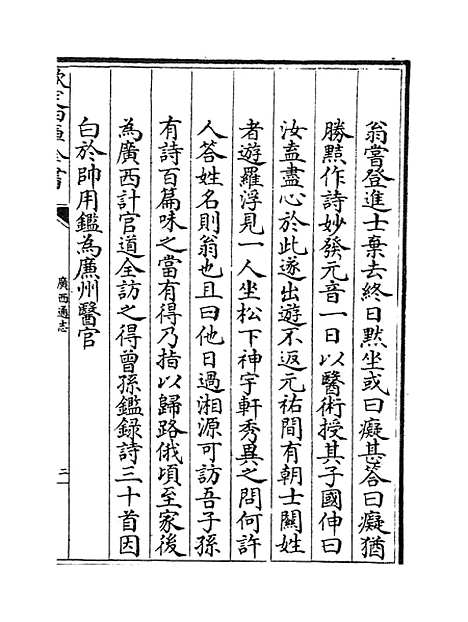 翁嘗登進士棄去終日黙坐或曰癡甚答曰癡猶
勝㸃作詩妙發元音一日以醫術授其子國伸曰
汝盍盡心於此遂出遊不返元祐間有朝士闗姓
者遊羅浮見一人坐松下神宇軒秀異之問何許
人答姓名則翁也且曰他日過湘源可訪吾子孫
有詩百篇味之當有得乃指以歸路俄頃至家後
為廣西計官道全訪之得曾孫鑑録詩三十首因
白於帥用鑑為廉州醫官
欽定四庫全書
廣西通志